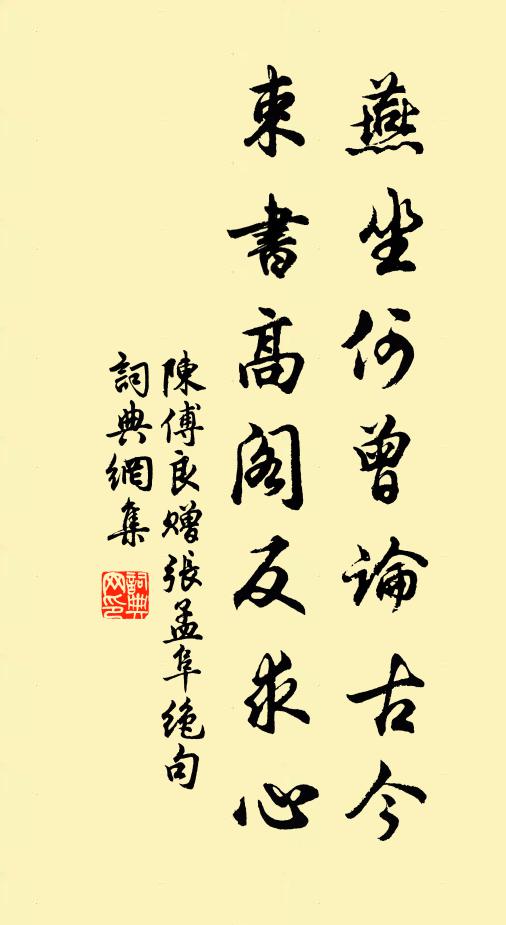 燕坐何曾論古今
束書高阁反求心
陳傅良贈張孟阜绝句
詞典網集
詞典网印